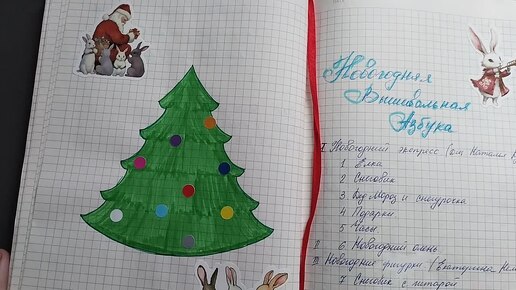 Новогодняя
Вышивальная
Азбука
I Новогодний экспресс (от Наталии
1 Ёлка
2 Снеговик
3 Дед Мороз и снегурочка
4 Подарки
5 Часы
II 6 Новогодний олень
III Новогодние фигурки (Екатерина
7 Снеговик с гитарой